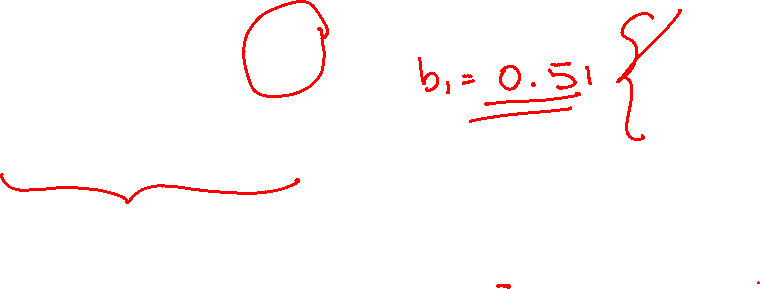 b₁ = 0.51 {